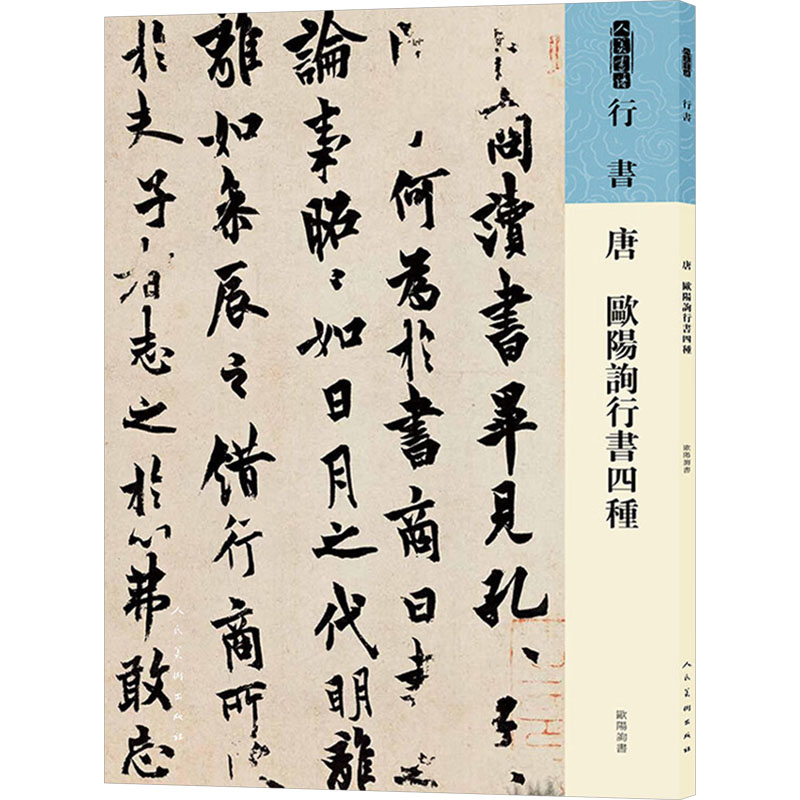 行書
唐 歐陽詢行書四種
歐陽詢書
人美書譜
行書
唐 歐陽詢行書四種
歐陽詢書
人民美術出版社
商讀書畢見孔子
何為於書商曰書之
論事昭〻如日月之代明離
離如參辰之錯行商所
於夫子者志之於心弗敢忘
人民美術出版社